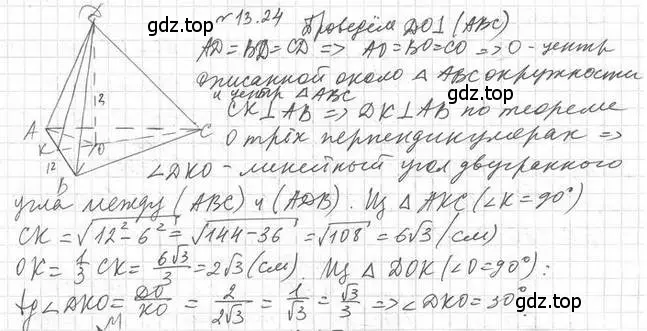 № 13.24
gdz.top
Проведём DO⊥(ABC)
AD=BD=CD => AO=BO=CO => O - центр
описанной около △ABC окружности
и центр △ABC
CK⊥AB => DK⊥AB по теореме
о трёх перпендикулярах =>
∠DKO - линейный угол двугранного
угла между (ABC) и (ADB). Из △AKC (∠K=90°)
CK=√12²-6² = √144-36 = √108 = 6√3 (см)
OK= 1/3 CK= 6√3/3 =2√3 (см). Из △DOK (∠O=90°):
tg∠DKO= DO/KO = 2/2√3 = 1/√3 = √3/3 => ∠DKO=30°
D
2
A
C
K
O
12
B
gdz.top
gdz.top
gdz.top
gdz.top
M